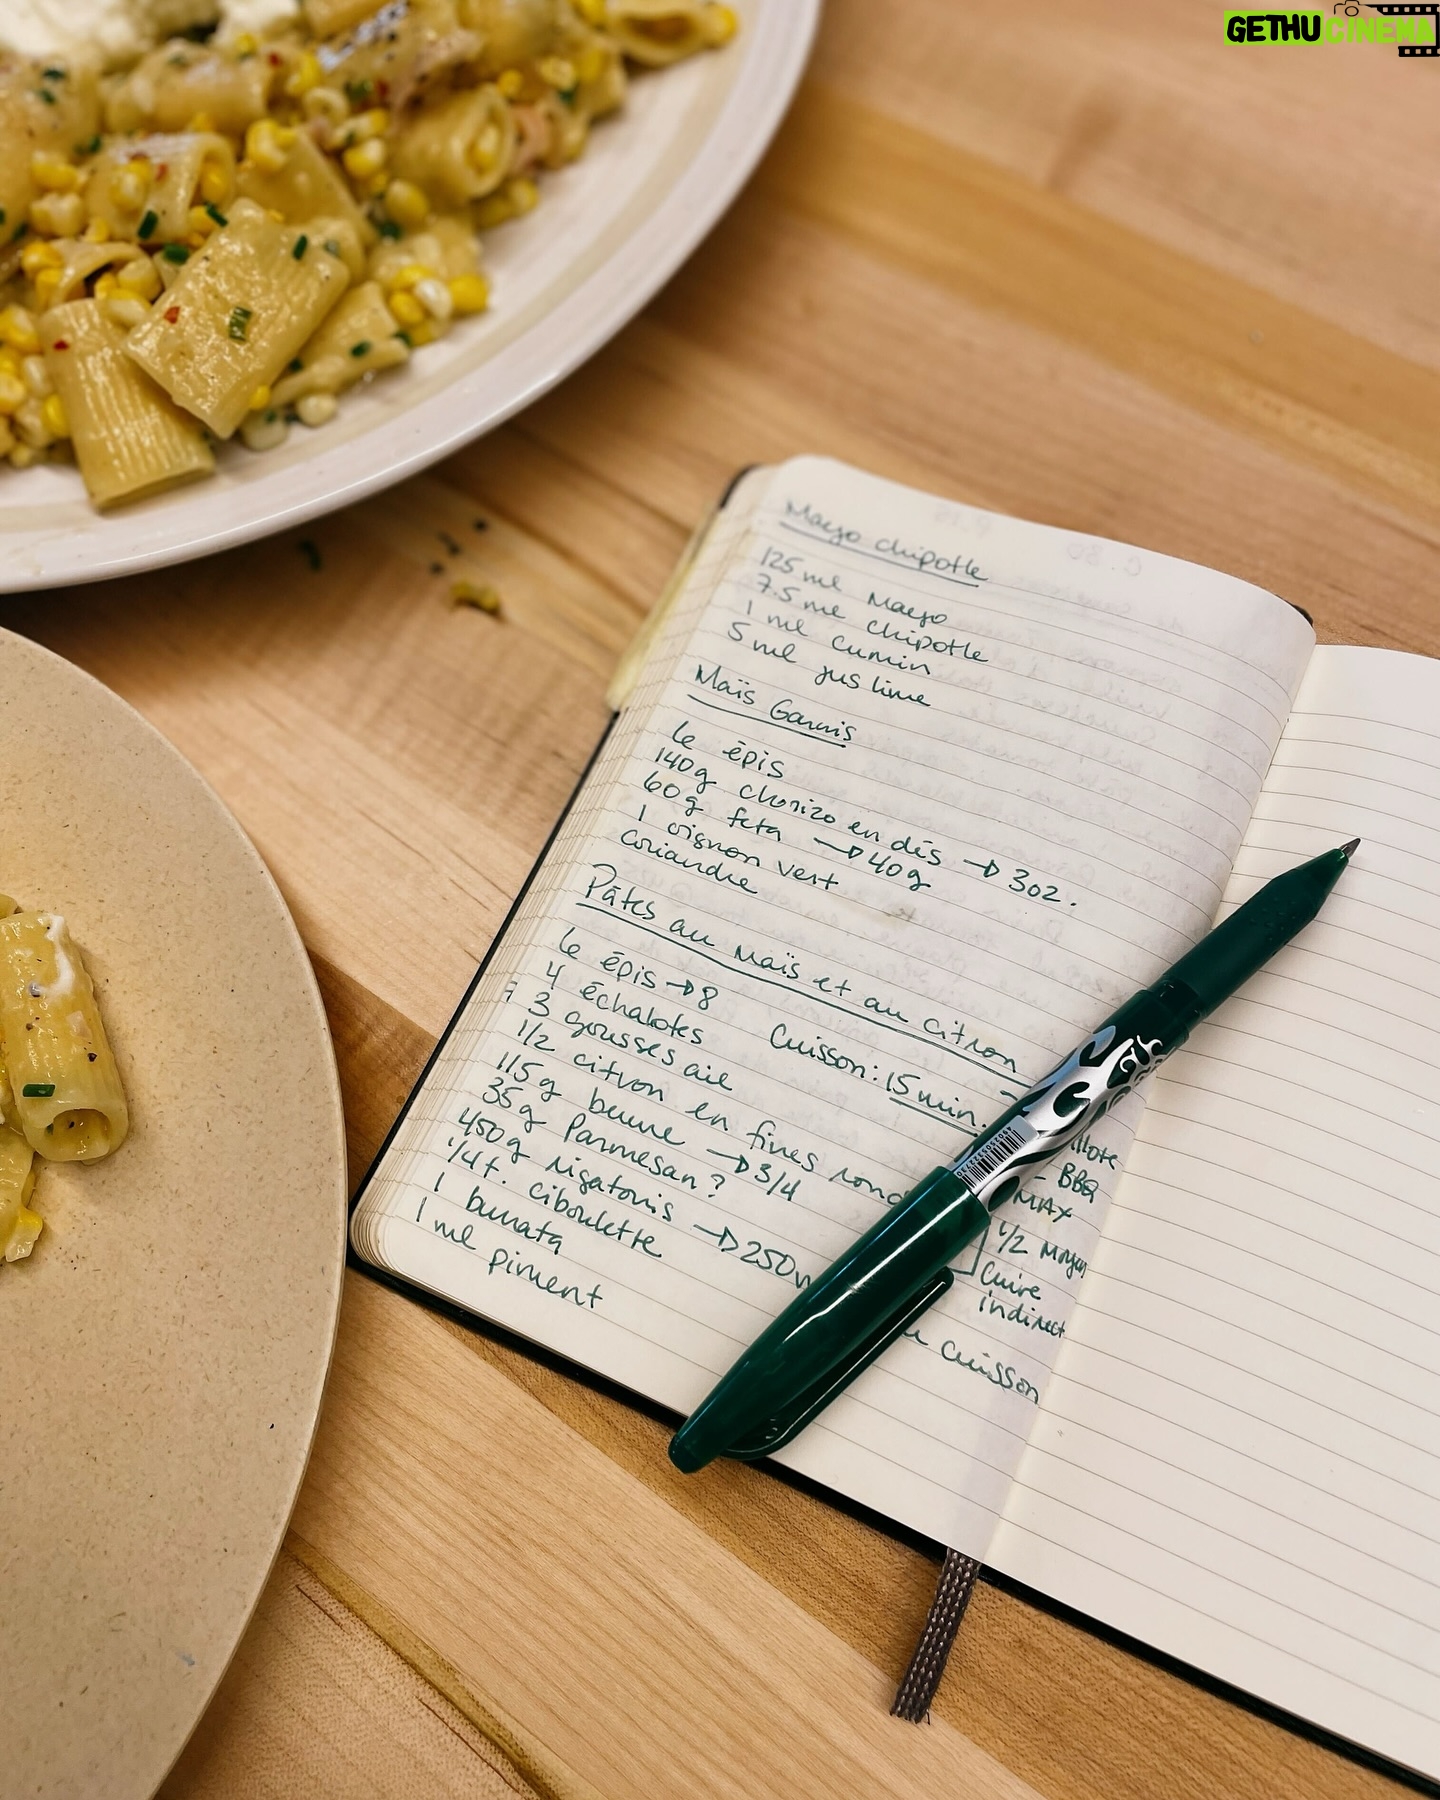 GETHUCINEMA
Mayo chipotle
125 ml Mayo
7.5 ml chipotle
1 ml cumin
5 ml jus lime
Maïs Garnis
6 épis
140g chorizo en dés → 3oz.
60g feta → 40g
1 oignon vert
coriandre
Pâtes au maïs et au citron
6 épis → 8
4 échalotes Cuisson: 15 min.
3 gousses ail
1/2 citron en fines
115g beurre → 3/4
35g Parmesan?
450g rigatonis → 250
1/4 t. ciboulette
1 burrata
1 ml piment
- BBQ
MAX
1/2 Moyen
Cuire
indirect
cuisson